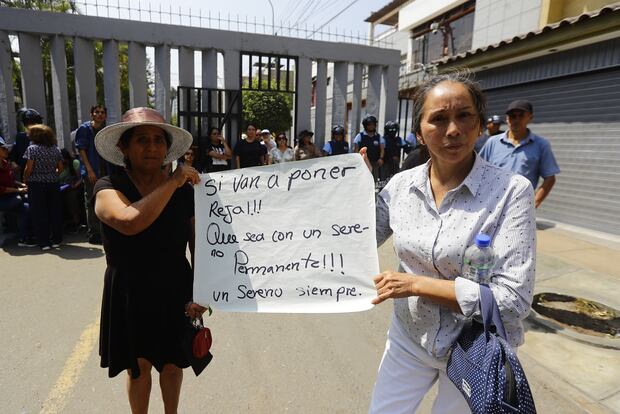 Si van a poner
Reja!!!
Que sea con un sere-
no Permanente!!!
un Sereno siempre.